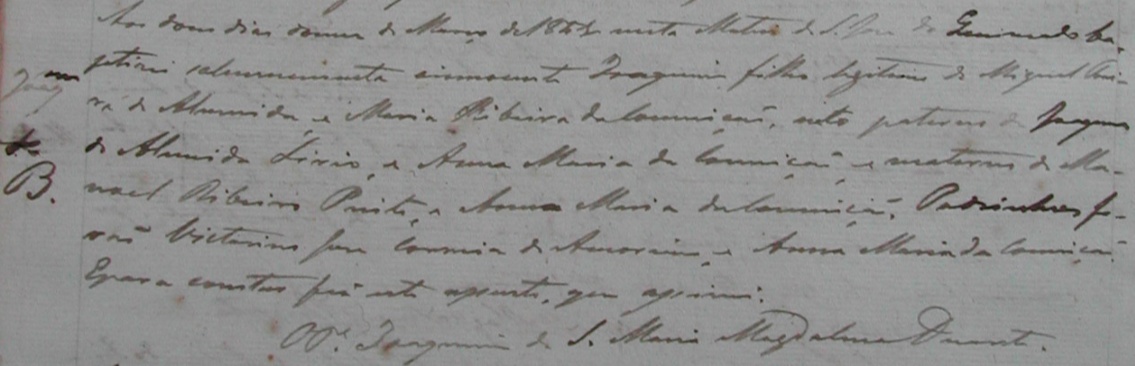 Aos dous dias do mez de Março de 1854 nesta Matriz de S. Jose de Guimarães ba-
ptizei solemnemente Joaquim filho legitimo de Miguel
de Almeida e Maria Ribeira da Conceição, neto paterno de Joaquim
de Almeida Lirio, e Anna Maria da Conceição e materno de Ma-
noel Ribeiro Pinto, e Anna Maria da Conceição. Padrinhos fo-
rão Victorino Jose Correia de Amorim, e Anna Maria da Conceição.
E para constar fiz este assento, que assinei.
Joaquim de S. Maria Magdalena Duarte.
B.